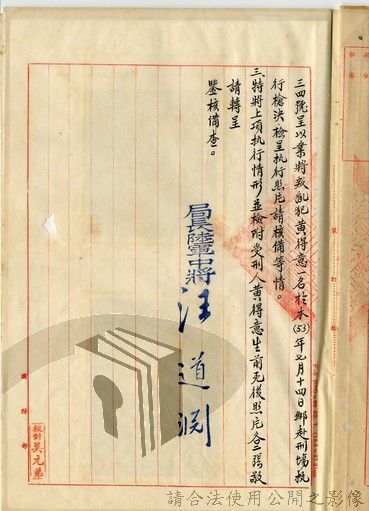 三四號呈以業將叛亂犯黃得意一名於本(53)年七月十四日綁赴刑場執
行槍決檢呈执行照片請核備等情。
三、特將上項执行情形並檢附受刑人黃得意生前死後照片各二張敬
請轉呈
鑒核備查。
局長陸軍中將汪道淵
國防部
校對吳元弟
請合法使用公開之影像